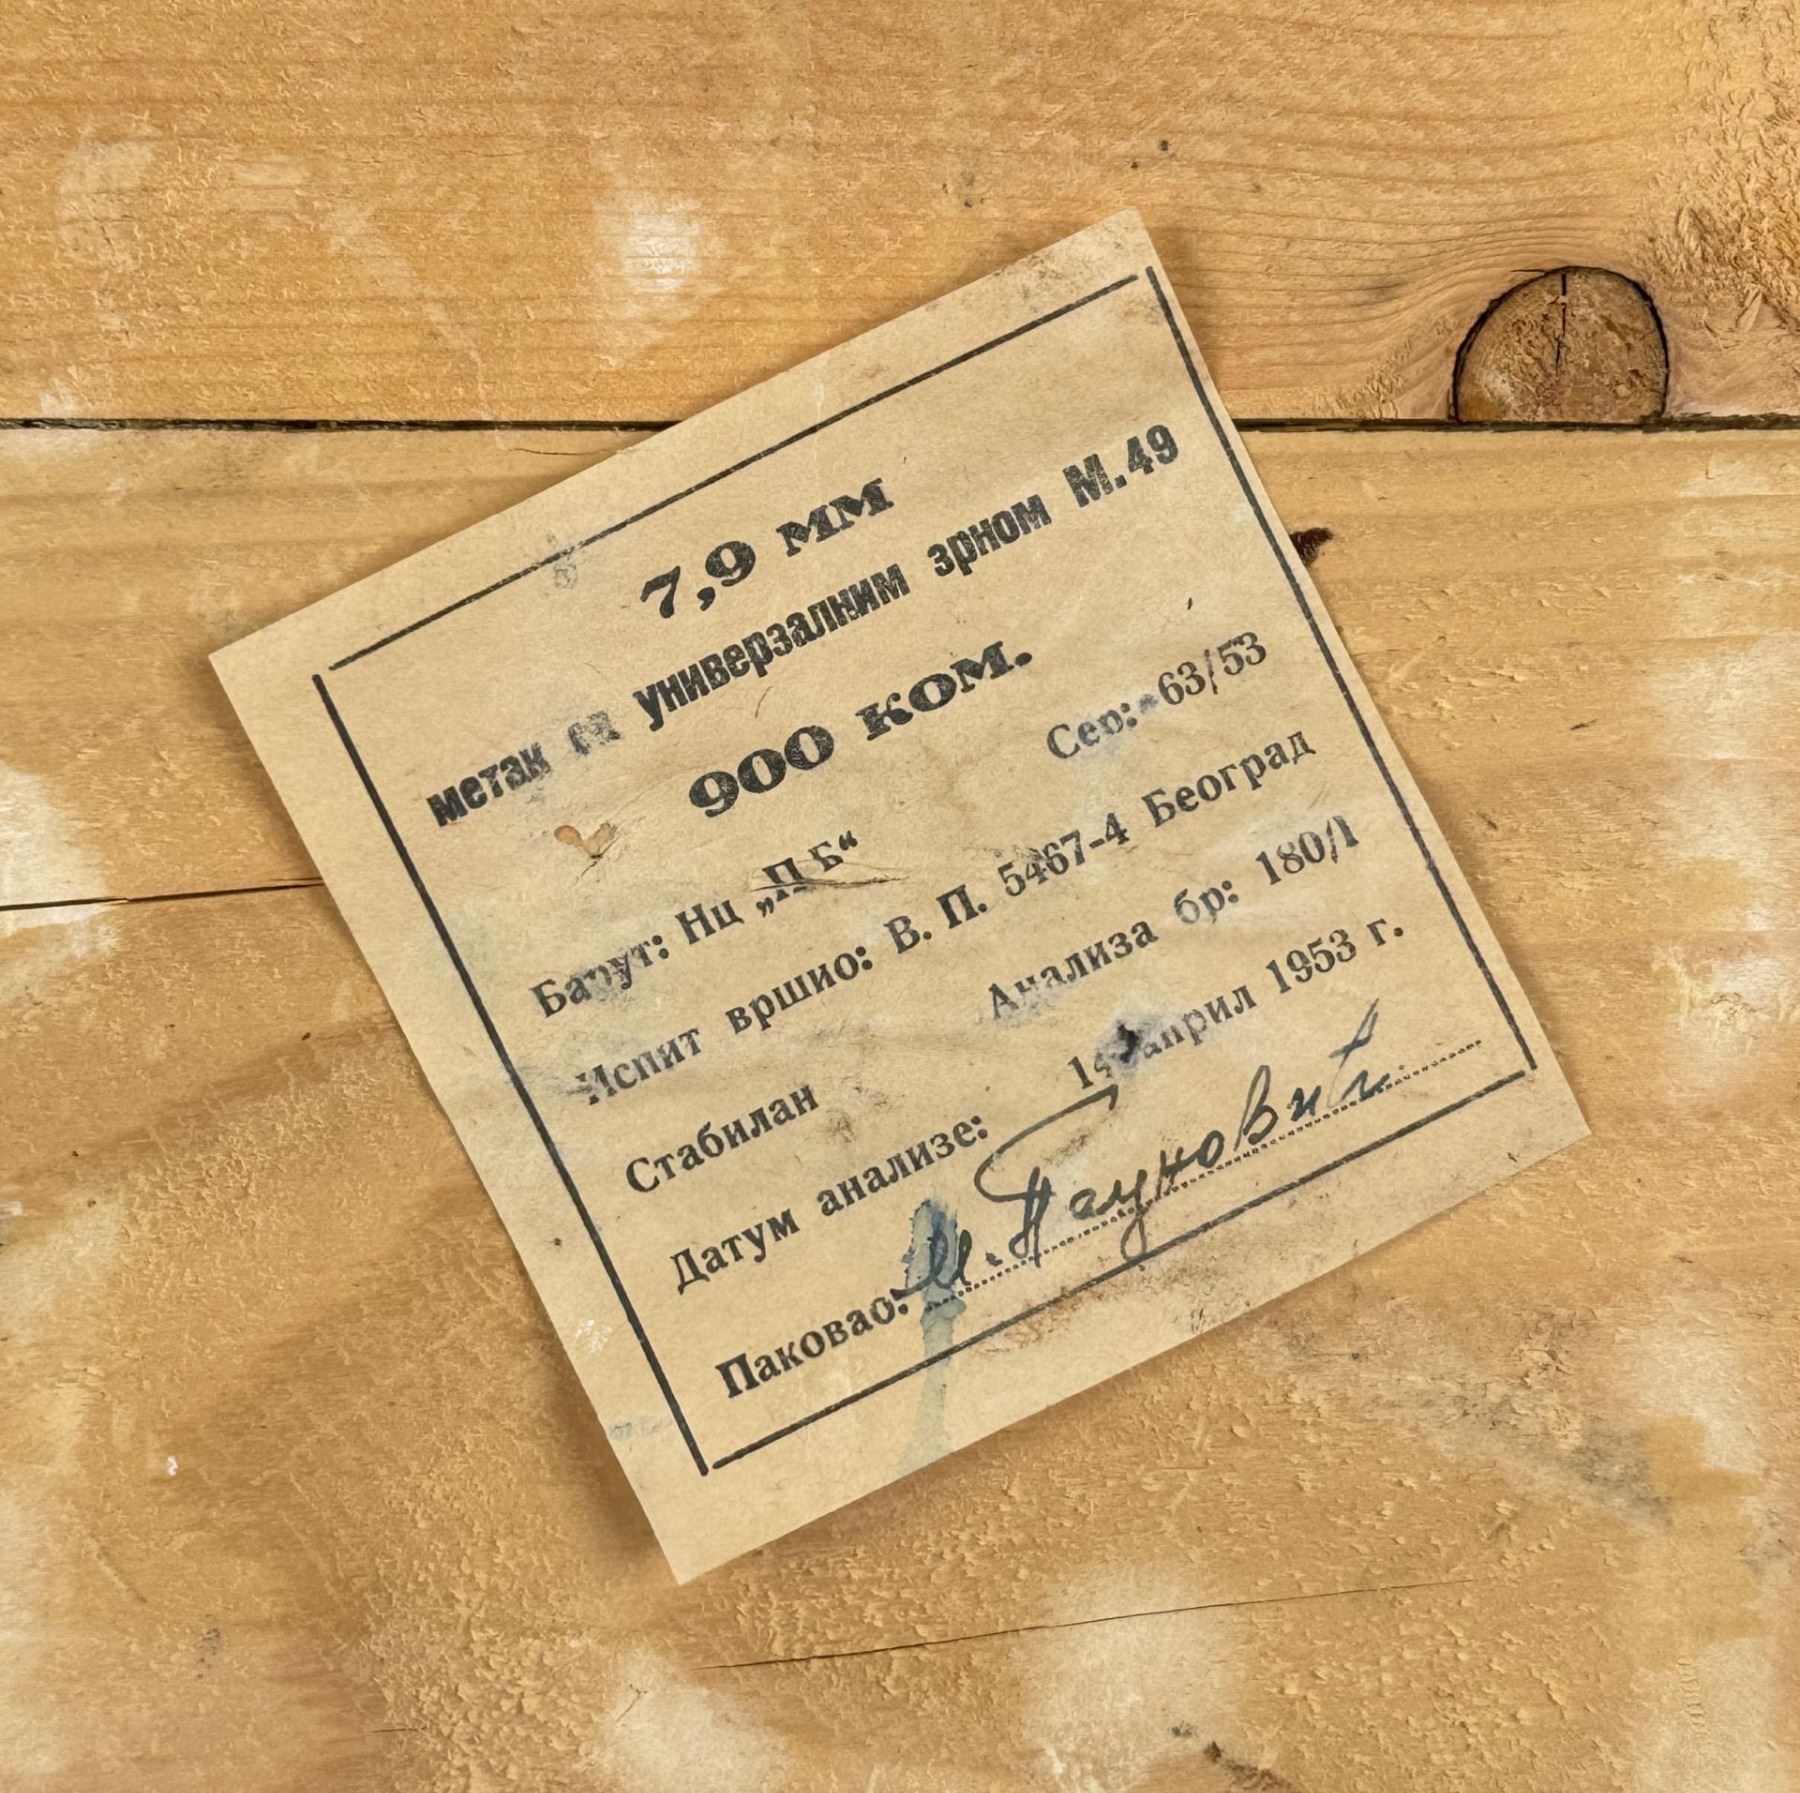 7,9 мм
метак са универзалним зрном М.49
900 ком.
Барут: Нц „П Б“ Сер: 63/53
Испит вршио: В. П. 5467-4 Београд
Стабилан Анализа бр: 180/1
Датум анализе: април 1953 г.
Паковао: М. Пауновић